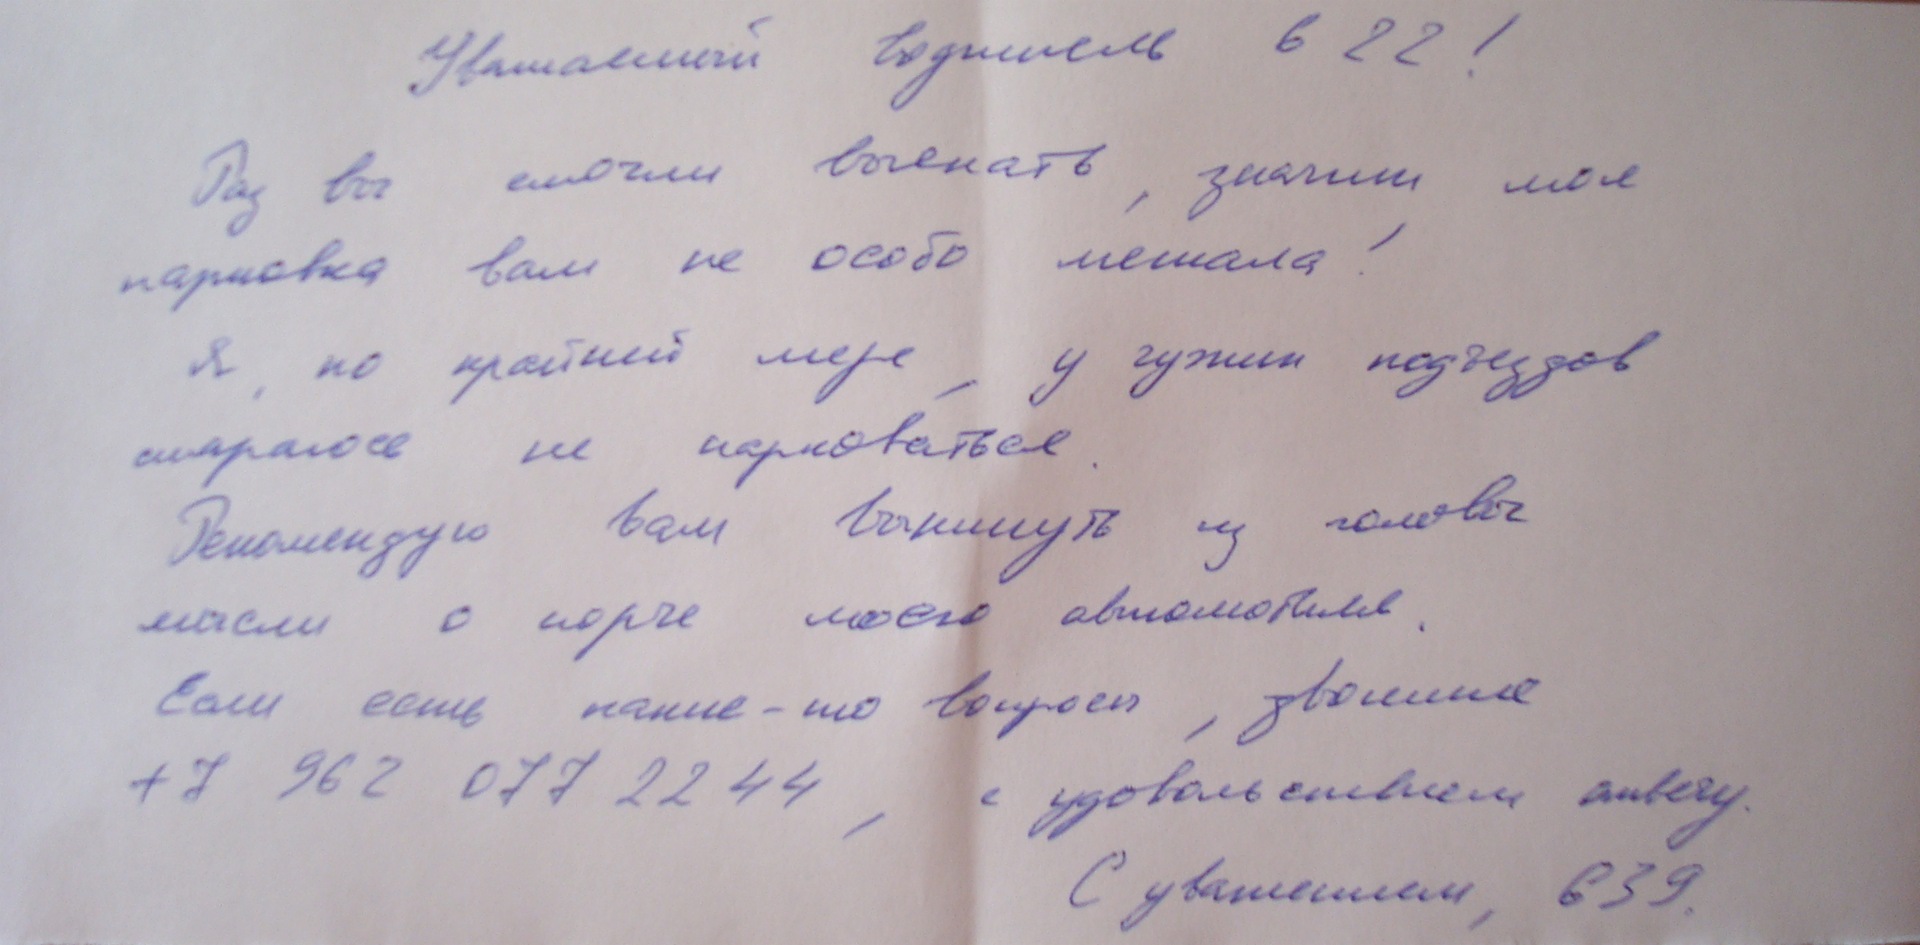 Уважаемый водитель 622!
Раз вы смогли выехать, значит моя
парковка вам не особо мешала!
Я, по крайней мере, у чужих подъездов
стараюсь не парковаться.
Рекомендую вам выкинуть из головы
мысли о порче моего автомобиля.
Если есть какие-то вопросы, звоните
+7 962 077 22 44, с удовольствием отвечу.
С уважением, 639.